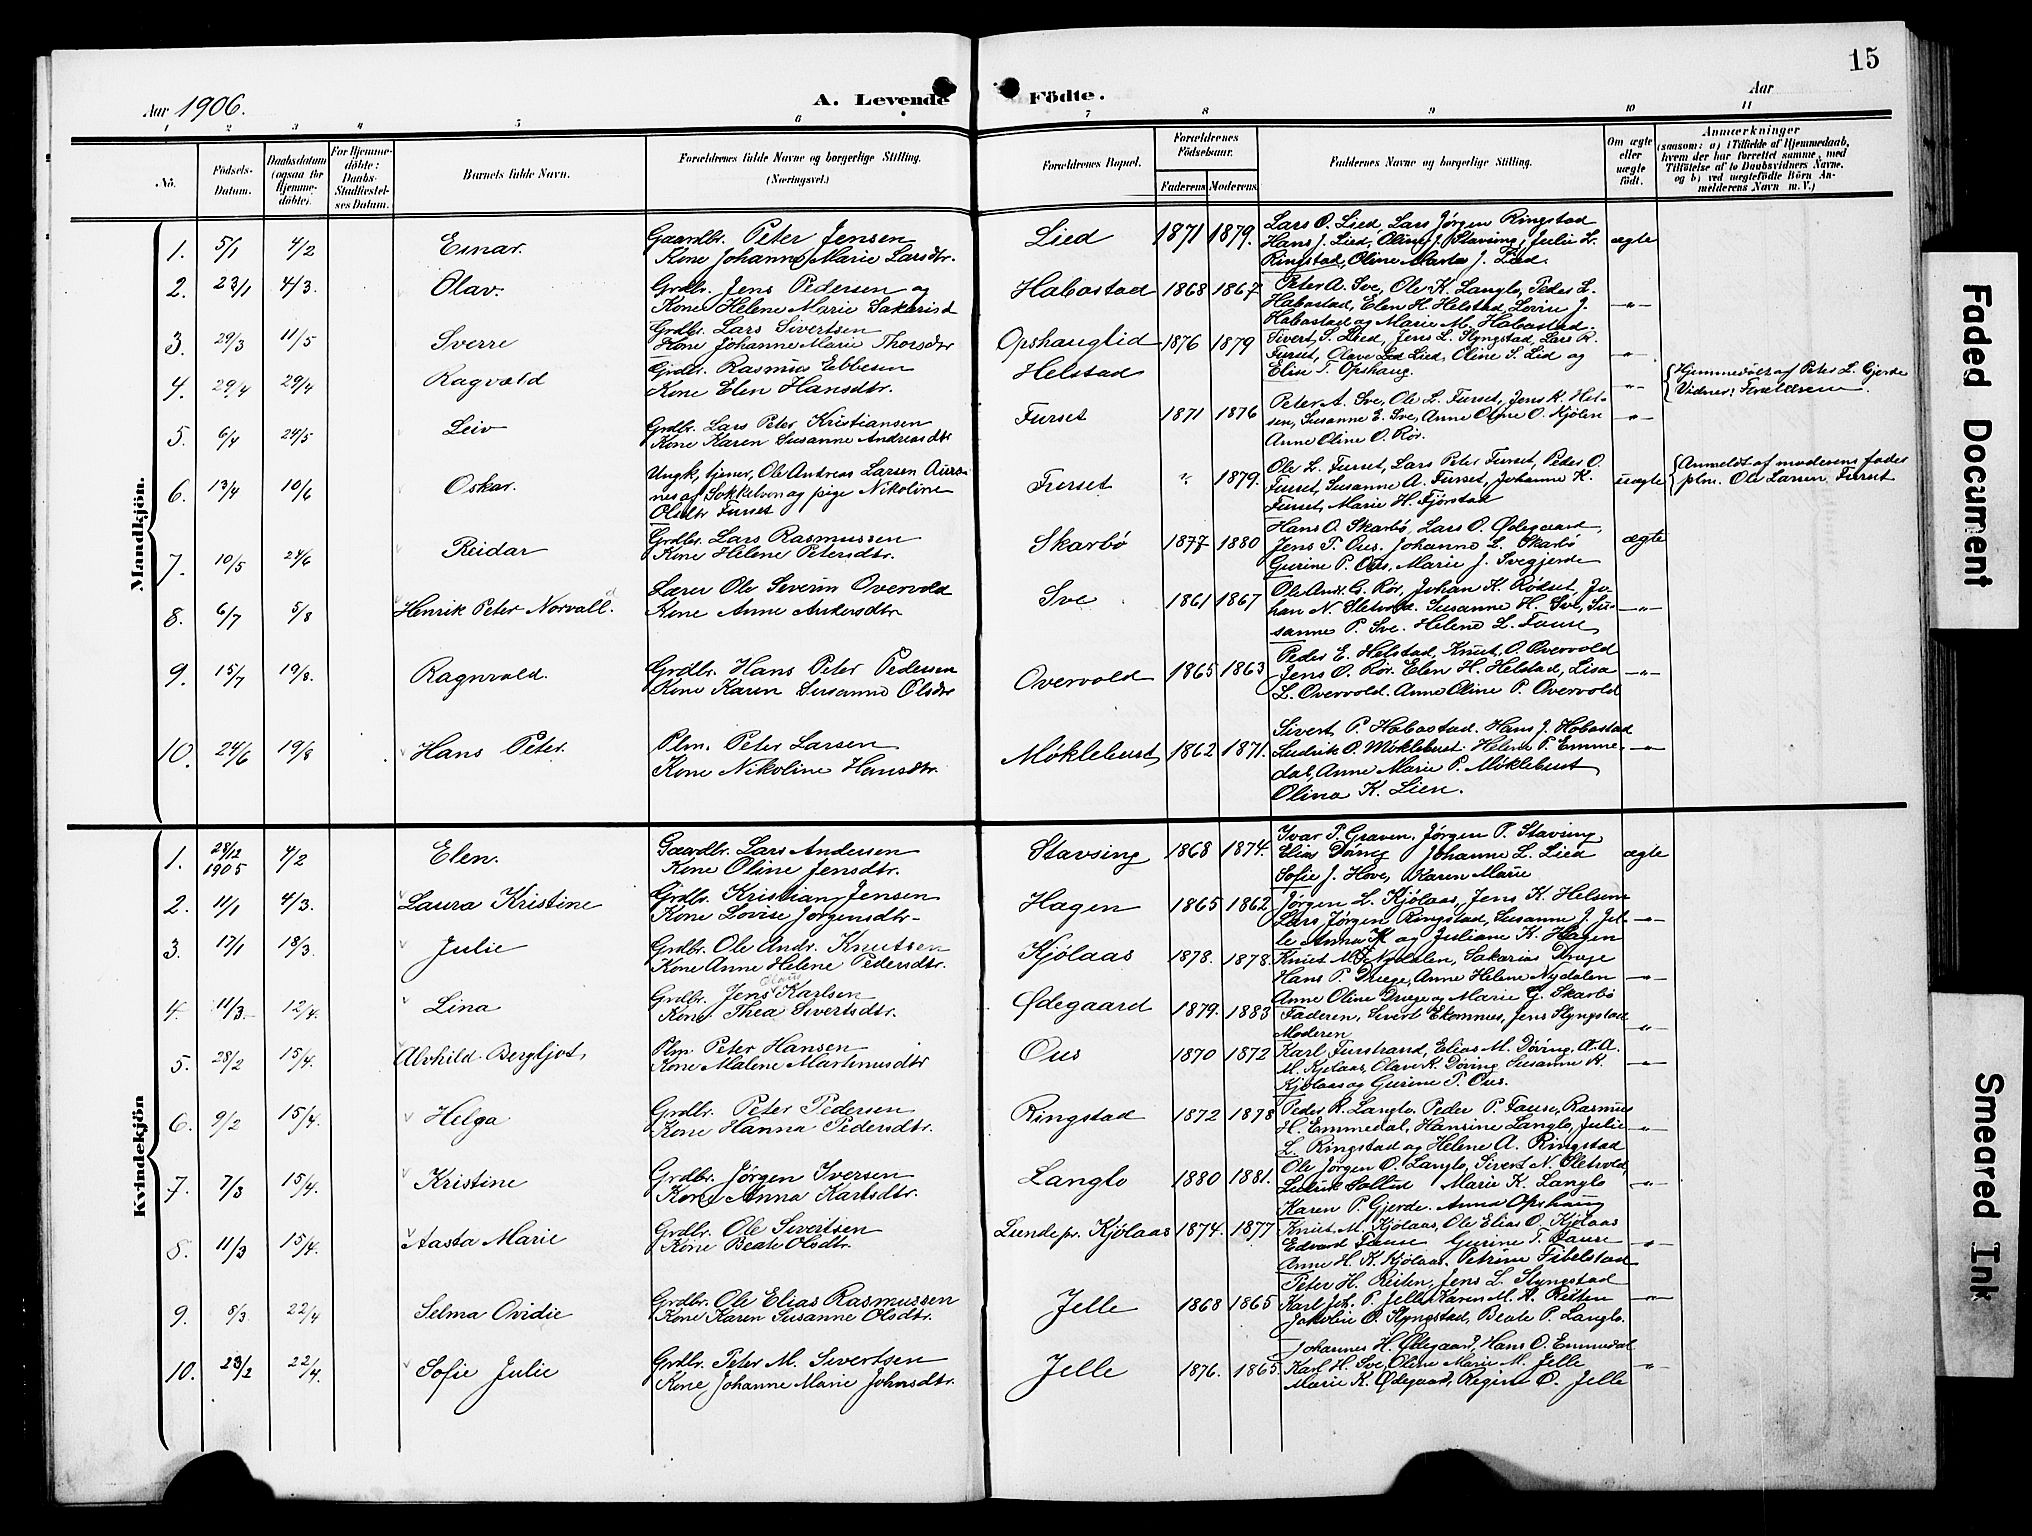 15
Aar 1906.
A. Levende Födte.
Aar
1 2 3 4 5 6 7 8 9 10 11
No.
Födsels-Datum.
Daabsdatum (ogsaa for Hjemmedöbte).
For Hjemmedöbte: Daabs-Stadfæstelses Datum.
Barnets fulde Navn.
Forældrenes fulde Navne og borgerlige Stilling. (Næringsvei.)
Forældrenes Bopæl.
Forældrenes Födselsaar.
Faderens. Moderens.
Faddernes Navne og borgerlige Stilling.
Om ægte eller uægte födt.
Anmærkninger (saasom: a) i Tilfælde af Hjemmedaab, hvem der har forrettet samme, med Tilföielse af to Daabsvidners Navne. og b) ved uægtefödte Börn Anmelderens Navn m. V.)
Mandkjön.
1. 5/1 4/2 Einar. Gaardbr. Peter Jensen Lied 1871 1879. Lars O. Lied, Lars Jørgen Ringstad
Kone Johanne Marie Larsdtr. Hans J. Lied, Oline J. Stavsing, Julie L. ægte
Ringstad, Oline Marta J. Lied.
2. 23/1 4/3. Olav. Grdbr. Jens Pedersen og Habostad 1868 1867 Peter A. Sve, Ole K. Langlo, Peder L.
Kone Helene Marie Sakarisd Habostad, Elen H. Helstad, Lovise J. -"-
Habostad og Marie M. Habostad.
3. 29/3 11/5 Sverre Grdbr. Lars Sivertsen Opshauglid 1876 1879 Sivert S. Lied, Jens L. Slyngstad, Lars R.
Kone Johanne Marie Thorsdtr Furset, Olave Lied, Oline S. Lid og -"-
Elise T. Opshaug.
4. 29/4 29/4 Ragvald Grdbr. Rasmus Ebbesen Helstad -"- Hjemmedöbt af Peter L. Gjerde
Kone Elen Hansdtr. Vidner: Forældrene
5. 6/4 24/5 Leiv Grdbr. Lars Peter Kristiansen Furset 1871 1876 Peter A. Sve, Ole L. Furset, Jens K. Hel-
Kone Karen Susanne Andreasdtr sen, Susanne E. Sve, Anne Oline O. Kjölen -"-
Anne Oline O. Rör.
6. 13/4 10/6 Oskar. Ungk, tjener, Ole Andreas Larsen Aurs- Furset " 1879. Ole L. Furset, Lars Peter Furset, Peder O. uægte Anmeldt af moderens fader
nes af Sokkelven og pige Nikoline Furset, Susanne A. Furset, Johanne K. plm. Ole Larsen Furset
Olsdtr Furset Furset, Marie H. Fjörstad
7. 10/5 24/6 Reidar Grdbr. Lars Rasmussen Skarbö 1877 1880 Hans O. Skarbö, Lars O. Ödegaard,
Kone Helene Petersdtr. Jens T. Ous. Johanne L. Skarbö ægte
Gurine P. Ous, Marie J. Svegjerde
8. 6/7 5/8 Henrik Peter Norvall. Lærer Ole Severin Overvold Sve 1861 1867 Ole Andr. G. Rör, Johan K. Rödset, Jo-
Kone Anne Andersdtr. han N. Sletvold. Susanne H. Sve, Su- -"-
sanne P. Sve. Helene L. Fause
9. 15/7 19/8. Ragnvald. Grdbr. Hans Peter Pedersen Overvold 1865 1863 Peder E. Helstad, Knut O. Overvold
Kone Karen Susanne Olsdtr Jens O. Rör. Elen H. Helstad, Lisa -"-
L. Overvold. Anne Oline P. Overvold
10. 24/6 19/8 Hans Peter. Plm. Peter Larsen Möklebust 1862 1871. Sivert P. Habostad. Hans J. Hobostad
Kone Nikoline Hansdtr. Ludvik O. Möklebust. Helene P. Emme- -"-
dal, Anne Marie P. Möklebust
Olina K. Lien.
Kvindekjön
1. 28/12 1905 4/2 Elen. Gaardbr. Lars Andersen Stavsing 1868 1874. Ivar P. Graven, Jørgen P. Stavsing
Kone Oline Jensdtr. Elias Döving Johanne L. Lied ægte
Sofie J. Hove, Karen Marie
2. 11/1 4/3. Laura Kristine Grdbr. Kristian Jensen Hagen 1865 1862 Jörgen L. Kjölaas, Jens K. Helsem
Kone Lovise Jörgensdtr- Lars Jörgen Ringstad, Susanne J. Jel- -"-
le Anna K og Juliane K. Hagen
3. 17/1 18/3. Julie Grdbr. Ole Andr. Knutsen Kjölaas 1878. 1878. Knut M. Nydalen, Sakarias Drage
Kone Anne Helene Pedersdtr. Hans P. Drege, Anne Helene Nydalen -"-
Anne Oline Drege og Marie G. Skarbö
4. 11/3. 12/4. Lina Grdbr. Jens Karlsen Ödegaard 1879. 1883 Faderen, Sivert Ekornnes, Jens Slyngstad
Kone Thea Sivertsdtr. Moderen -"-
5. 28/2 15/4. Alvhild Bergljot, Plm. Peter Hansen Ous 1870 1872 Karl Furstrand, Elias M. Döving, A. A.
Kone Malene Martinusdtr M. Kjölaas, Olave K. Döving Susanne K. -"-
Kjölaas og Gurine T. Ous.
6. 9/2 15/4. Helga Grdbr. Peter Pedersen Ringstad 1872 1878 Peder R. Langlo, Peder P. Fause, Rasmus
Kone Hanna Pedersdtr. H. Emmedal, Hansine Langlo, Julie -"-
L. Ringstad og Helene A. Ringstad
7. 7/3 15/4. Kristine Grdbr. Jörgen Iversen Langlo 1880 1881. Ole Jörgen O. Langlo, Sivert N. Sletvold,
Kone Anna Karlsdtr. Ludvik Marie K. Langlo -"-
Karen P. Gjerde. Anna Opshaug
8. 11/3 15/4. Aasta Marie Grdbr. Ole Sivertsen Lunde pr. Kjölaas 1874. 1877 Knut M. Kjölaas, Ole Elias O. Kjölaas
Kone Beate Olsdtr. Edvard Fause Gurine T. Fause -"-
Anne H. K. Kjölaas. Petrine Fibelstad
9. 8/3. 22/4 Selma Ovidie Grdbr. Ole Elias Rasmussen Jelle 1868 1865 Peter H. Reiten, Jens L. Slyngstad
Kone Karen Susanne Olsdtr. Karl Joh. P. Jelle Karen M. A. Reiten -"-
Jakobie O. Slyngstad, Beate P. Langlo.
10. 23/2 22/4. Sofie Julie Grdbr. Peter M. Sivertsen Jelle 1876. 1865. Johannes H. Ödegaard, Hans O. Emmedal
Kone Johanne Marie Johnsdtr. Karl H. Sve, Oline Marie M. Jelle -"-
Marie K. Ödegaard, Regine O. Jelle
Faded Document
Smeared Ink